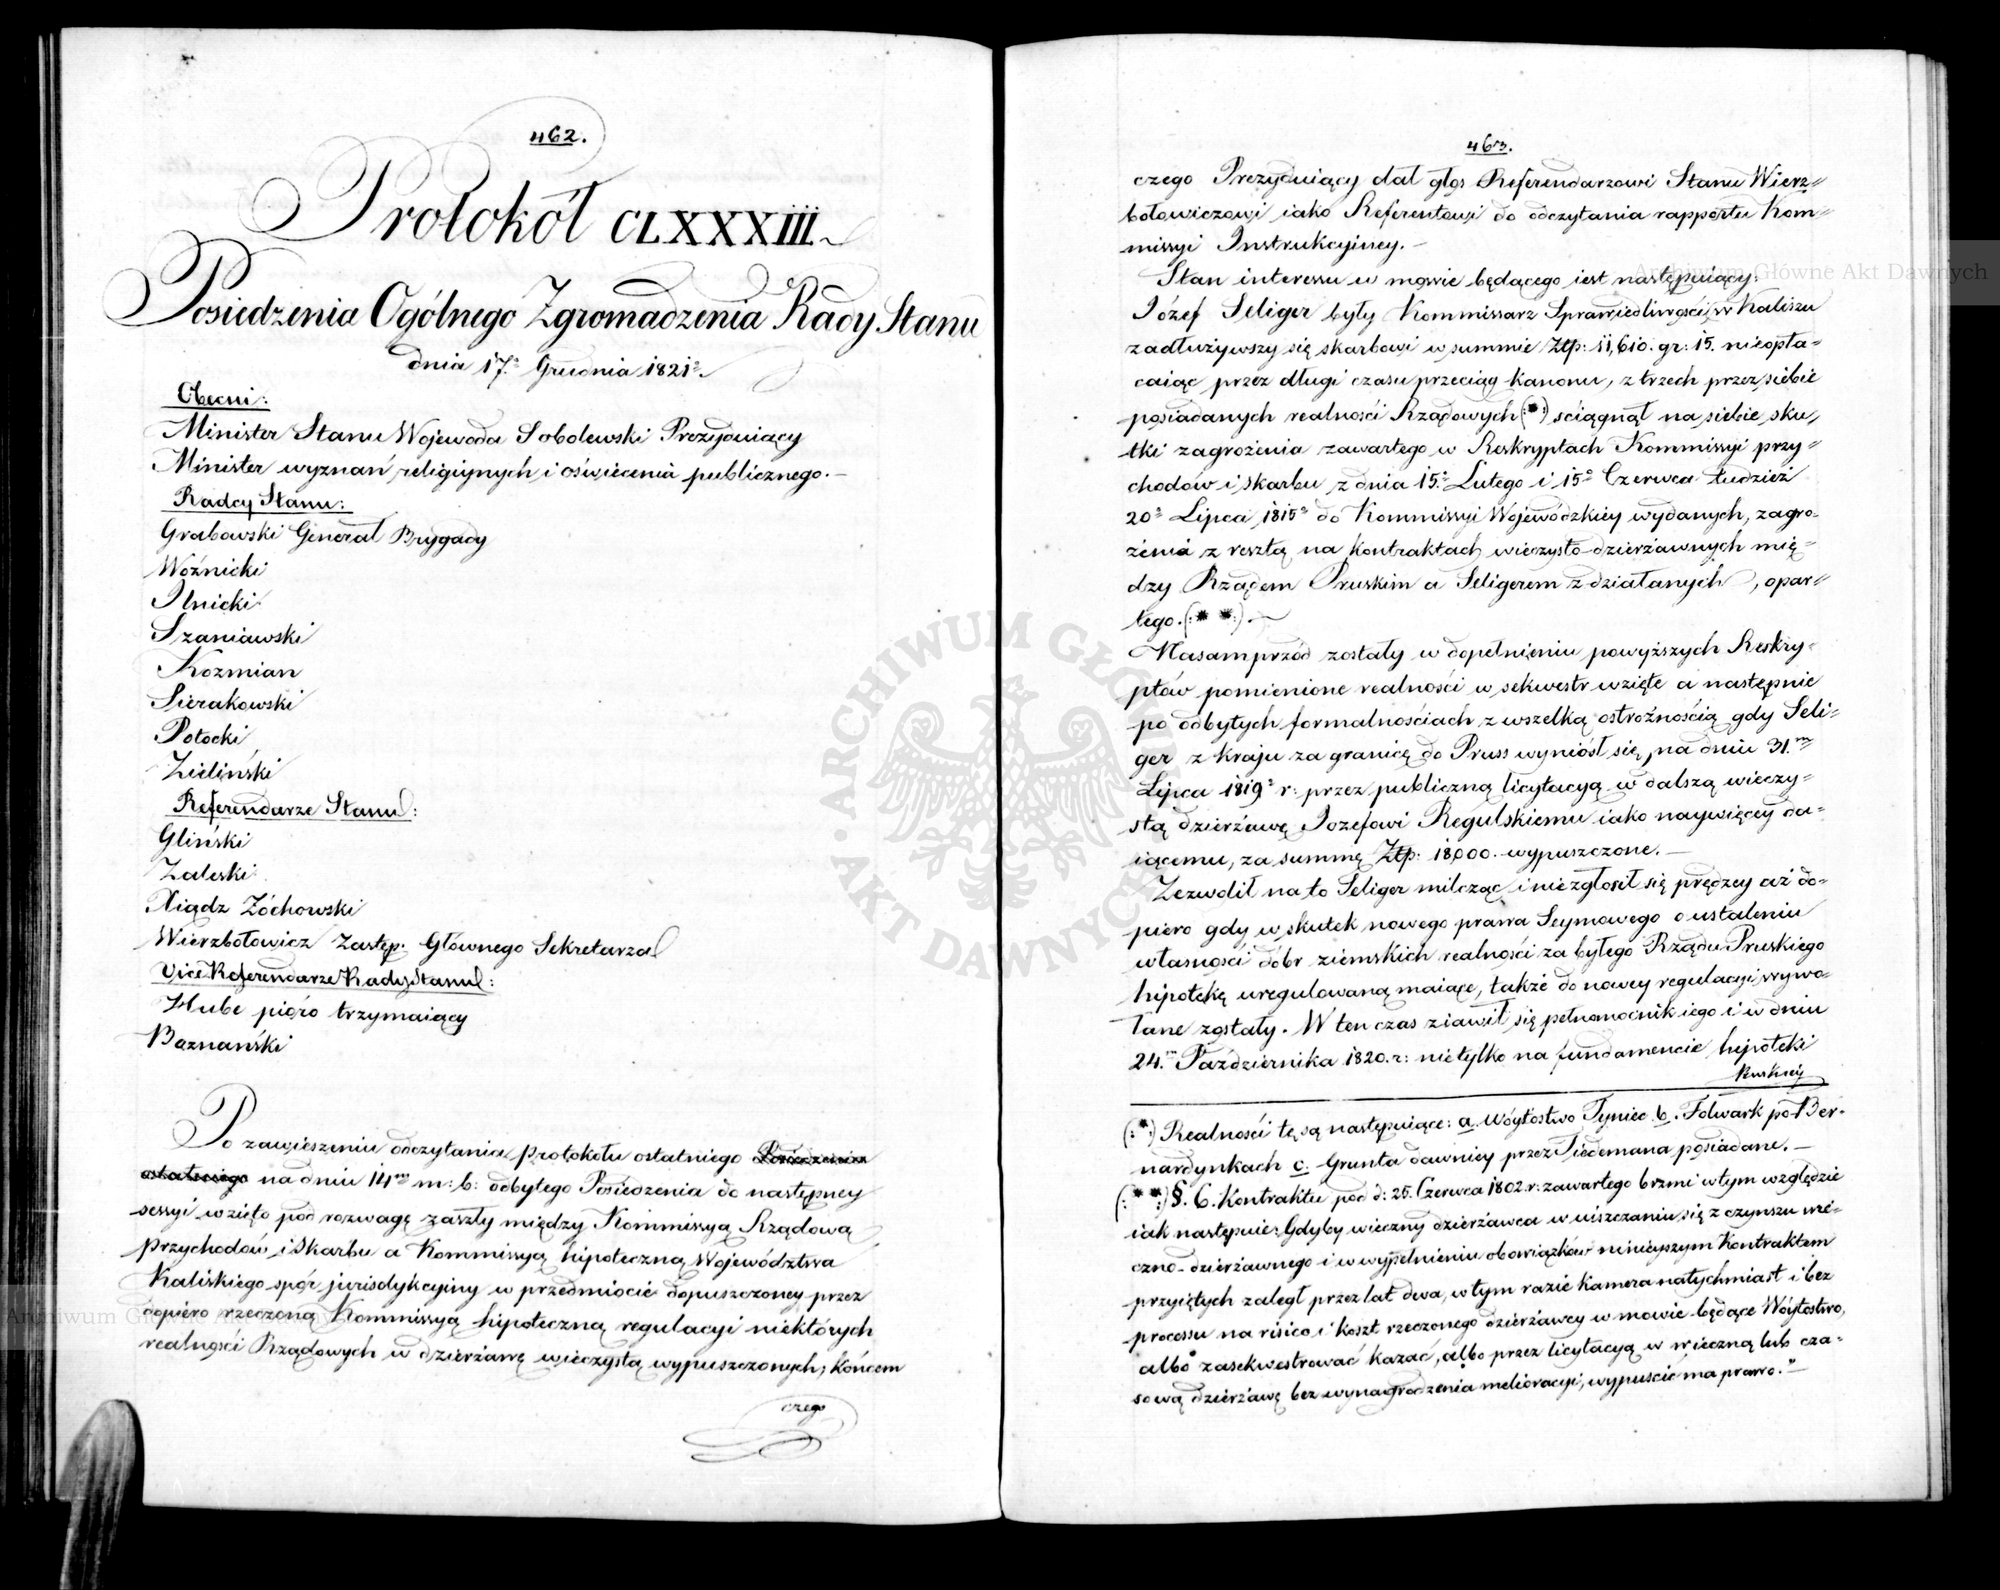 462.
Protokół CLXXXIII.
Posiedzenia Ogólnego Zgromadzenia Rady Stanu
dnia 17.º Grudnia 1821º.
Obecni:
Minister Stanu Wojewoda Sobolewski Prezyduiący
Minister wyznań religijnych i oświecenia publicznego. –
Radcy Stanu:
Grabowski Generał Brygady
Woźnicki
Ilnicki
Szaniawski
Kozmian
Sierakowski
Potocki
Zieliński
Referendarze Stanu:
Gliński
Zaleski
Xiądz Zóchowski
Wierzbołowicz Zastęp. Głównego Sekretarza
Vice Referendarze Rady Stanu:
Hube pióro trzymaiący
Baznański
Po zawieszeniu odczytania protokołu ostatniego Posiedzenia
ostatniego na dniu 14m m: b: odbytego Posiedzenia do następney
sessyi wzięto pod rozwagę zaszły między Kommissyą Rządową
Przychodów i Skarbu a Kommissyą hipoteczną Województwa
Kaliskiego spór jurisdykcyiny w przedmiocie dopuszczoney przez
dopiéro rzeczoną Kommissyą hipoteczną regulacyi niektórych
realności Rządowych w dzierżawę wieczystą wypuszczonych; końcem
czego
463.
czego Prezyduiący dał głos Referendarzowi Stanu Wierz=
bołowiczowi iako Referentowi do odczytania rapportu Kom=
missyi Instrukcyiney. –
Stan interessu w mowie będącego iest następuiący:
Józef Seliger były Kommissarz Sprawiedliwości w Kaliszu
zadłużywszy się skarbowi w summie Złp: 11,610. gr: 15. nieopła=
caiąc przez długi czasu przeciąg kanonu, z trzech przez siebie
posiadanych realności Rządowych (:*:) sciągnął na siebie sku=
tki zagrożenia zawartego w Reskryptach Kommissyi przy=
chodów i skarbu z dnia 15.º Lutego i 15º Czerwca tudzież
20º Lipca 1815º do Kommissyi Wojewódzkiey wydanych, zagro=
żenia z resztą na kontraktach wieczysto-dzierżawnych mię=
dzy Rządem Pruskim a Seligerem zdziałanych, opar=
tego. (:* *:) –
Nasamprzód zostały w dopełnieniu powyższych Reskry=
ptów pomienione realności w sekwestr wzięte a następnie
po odbytych formalnościach z wszelką ostrożnością gdy Seli=
ger z kraju za granicę do Pruss wyniósł się, na dniu 31.m
Lipca 1819º r: przez publiczną licytacyą w dalszą wieczy=
stą dzierżawę Jozefowi Regulskiemu iako naywięcey da=
iącemu, za summę Złp: 18,000. wypuszczone. –
Zezwolił na to Seliger milcząc i niezgłosił się prędzey aż do=
piero gdy w skutek nowego prawa Seymowego o ustaleniu
własności dóbr ziemskich realności za byłego Rządu Pruskiego
hipotekę uregulowaną maiące, także do nowey regulacyi wywo=
łane zostały. W ten czas ziawił się pełnomocnik iego i w dniu
24.m Października 1820. r: nietylko na fundamencie hipoteki
Pruskiey
(:*:) Realności te są następuiące: a. Wóytostwo Tyniec. b. Folwark po Ber=
nardynkach c. Grunta dawniey przez Tiedemana posiadane. –
(:* *:) §. 6. Kontraktu pod d: 25. Czerwca 1802. r: zawartego brzmi w tym względzie
iak następuie: Gdyby wieczny dzierżawca w uiszczaniu się z czynszu wie=
czno-dzierżawnego i w wypełnieniu obowiązków niniejszym Kontraktem
przyiętych zaległ przez lat dwa, w tym razie Kamera natychmiast i bez
processu na risico i koszt rzeczonego dzierżawcy w mowie będące Wóytostwo,
albo zasekwestrować kazać, albo przez licytacyą w wieczną lub cza=
sową dzierżawę bez wynagrodzenia melioracyi, wypuścić ma prawo." –
Archiwum Główne Akt Dawnych
ARCHIWUM GŁÓWNE AKT DAWNYCH
Archiwum Główne Akt Dawnych